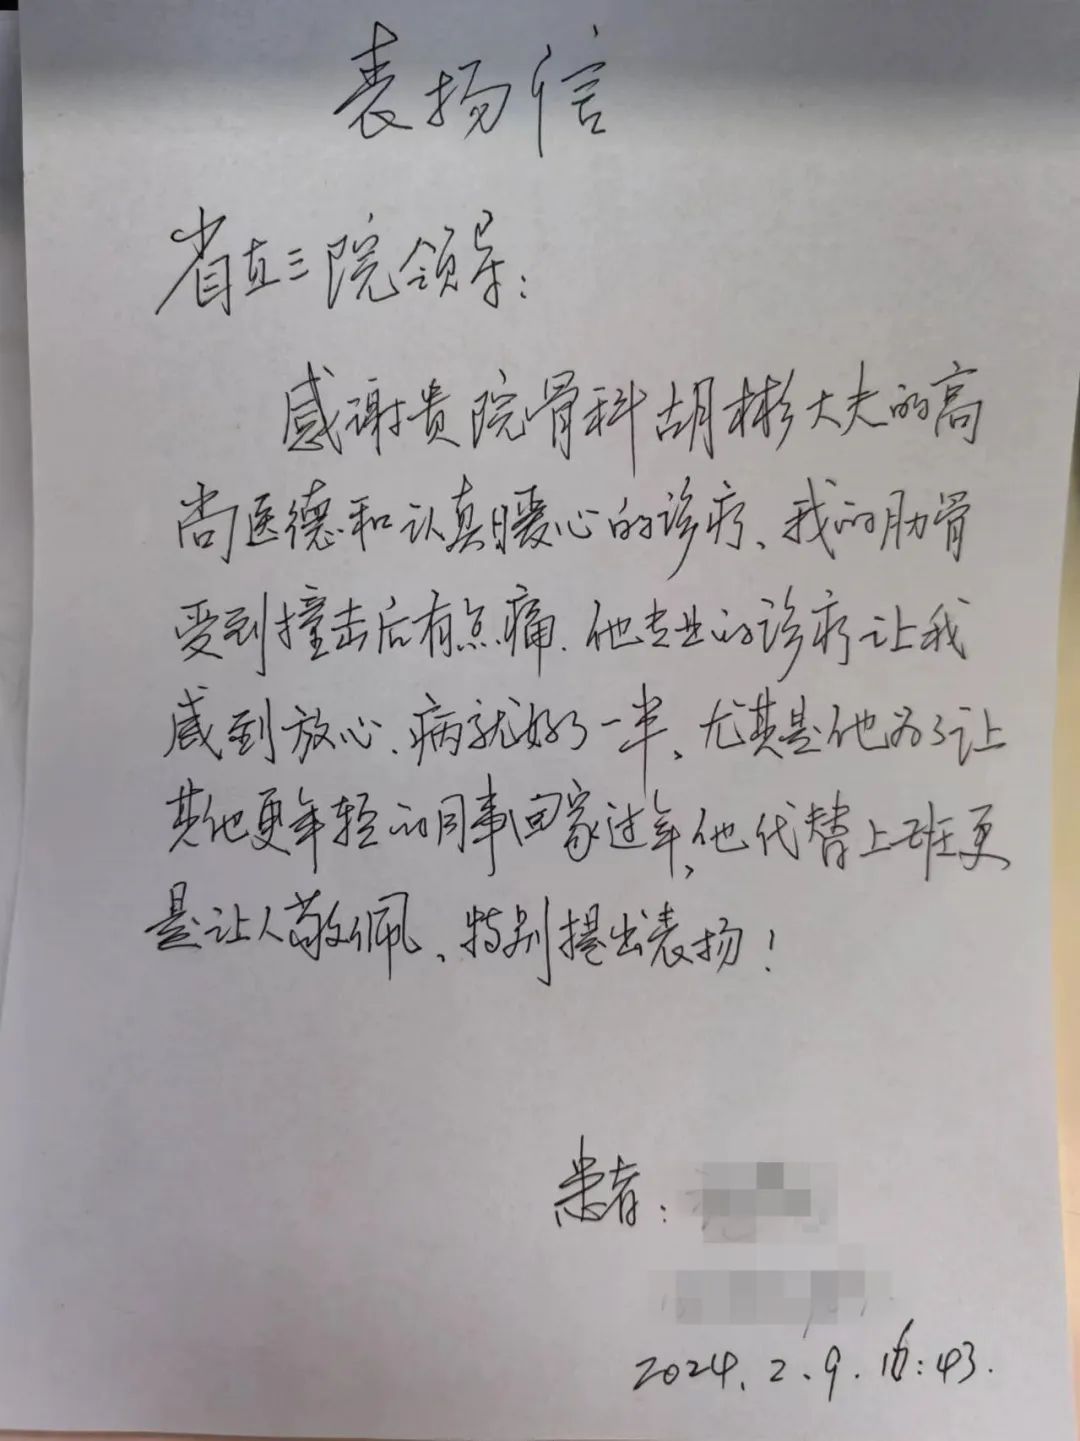 表扬信
省直三院领导:
感谢贵院骨科胡彬大夫的高
尚医德和认真暖心的诊疗、我的肋骨
受到撞击后有点痛.他专业的诊疗让我
感到放心、病就好了一半、尤其是他为了让
其他更年轻的同事回家过年、他代替上班更
是让人敬佩、特别提出表扬!
患者:
2024.2.9.16:43.